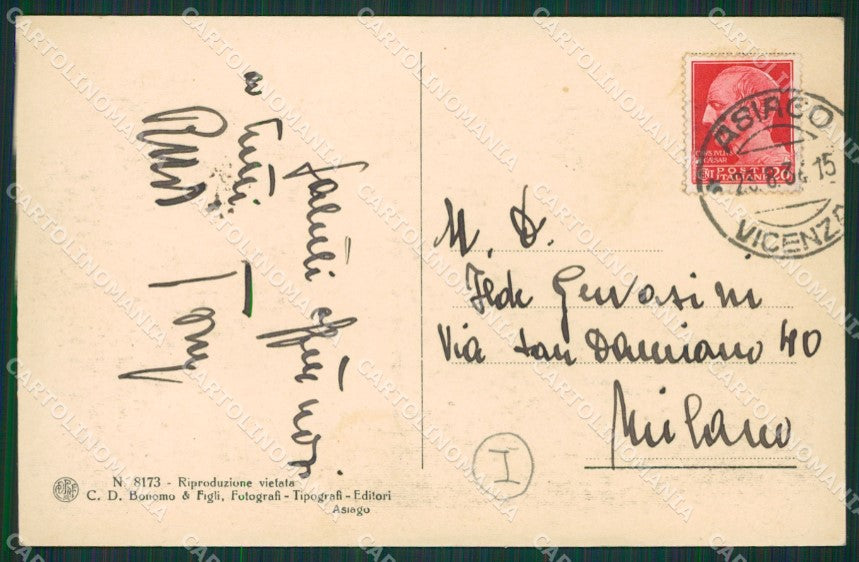 Saluti affettuosi
a tutti
Tony
CAIVS IVLIVS
CAESAR
CENT POSTE 20
ITALIANE
ASIAGO
15
VICENZA
N. D.
Fede Gervasini
Via San Damiano 40
Milano
I
N. 8173 - Riproduzione vietata
C. D. Bonomo & Figli, Fotografi - Tipografi - Editori
Asiago
CARTOLINOMANIA